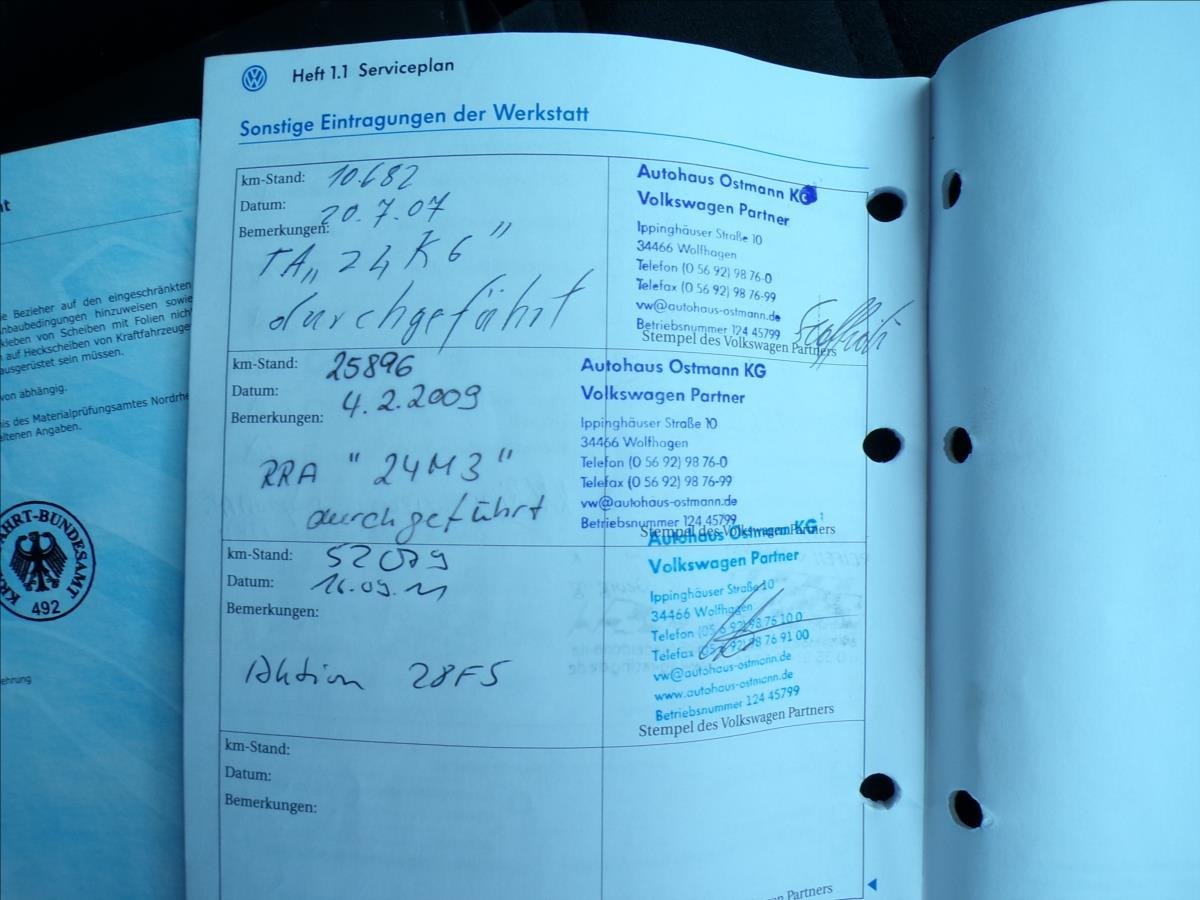 nt
e Bezieher auf den eingeschränkten
nbaubedingungen hinzuweisen sowie
kleben von Scheiben mit Folien nich
auf Heckscheiben von Kraftfahrzeuge
ausgerüstet sein müssen.
von abhängig.
nis des Materialprüfungsamtes Nordrhe
altenen Angaben.
AHRT-BUNDESAMT
492
ehrung
Heft 1.1 Serviceplan
Sonstige Eintragungen der Werkstatt
km-Stand: 10.682
Datum: 20.7.07
Bemerkungen:
TA „24K6"
durchgeführt
Autohaus Ostmann KG
Volkswagen Partner
Ippinghäuser Straße 10
34466 Wolfhagen
Telefon (0 56 92) 98 76-0
Telefax (0 56 92) 98 76-99
vw@autohaus-ostmann.de
Betriebsnummer 124 45799
Stempel des Volkswagen Partners
km-Stand: 25896
Datum: 4.2.2009
Bemerkungen:
RRA "24M3"
durchgeführt
Autohaus Ostmann KG
Volkswagen Partner
Ippinghäuser Straße 10
34466 Wolfhagen
Telefon (0 56 92) 98 76-0
Telefax (0 56 92) 98 76-99
vw@autohaus-ostmann.de
Betriebsnummer 124 45799
Stempel des Volkswagen Partners
km-Stand:
Datum: 16.09.11
Bemerkungen:
Aktion 28F5
Autohaus Ostmann KG
Volkswagen Partner
Ippinghäuser Straße 10
34466 Wolfhagen
Telefon (05 6 92) 98 76 10 0
Telefax (05 6 92) 98 76 91 00
vw@autohaus-ostmann.de
www.autohaus-ostmann.de
Betriebsnummer 124 45799
Stempel des Volkswagen Partners
km-Stand:
Datum:
Bemerkungen:
Partners